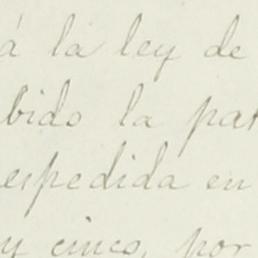 á la ley de
bido la pat
espedida en
y cinco, por